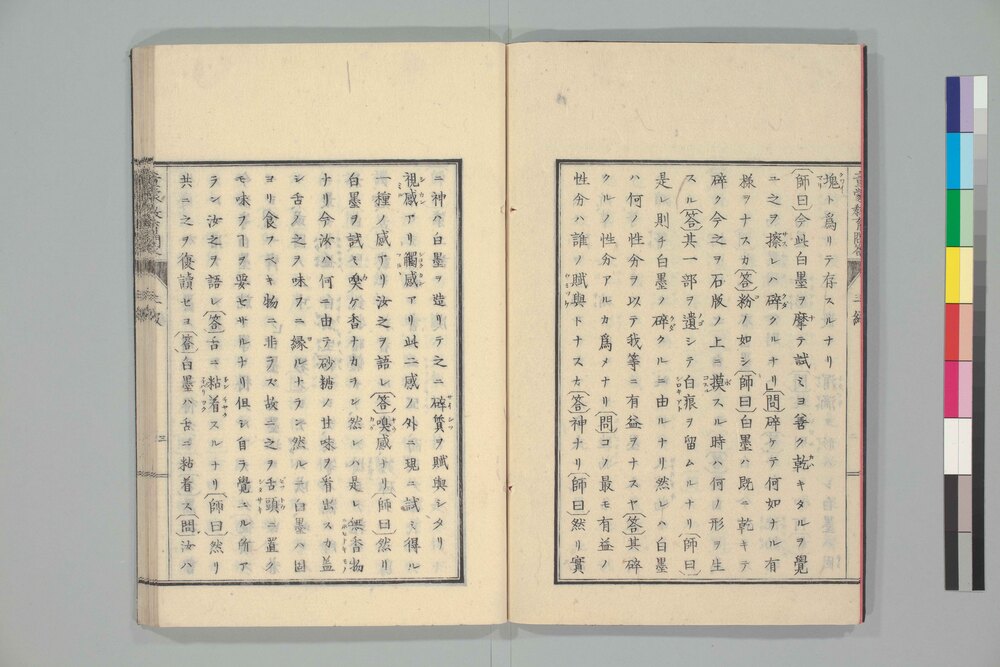 塊ト爲リテ存スルナリ
師曰今此白墨ヲ摩テ試ミヨ善ク乾キタルヲ覺
ユ之ヲ擦レハ碎クルナリ」問碎ケテ何如ナル有
樣ヲナスカ答粉ノ如シ師曰白墨ハ既ニ乾キテ
碎ク今之ヲ石版ノ上ニ摸スル時ハ何ノ形ヲ生
スル答其一部ヲ遺シテ白痕ヲ留ムルナリ師曰
是レ則チ白墨ノ碎クルニ由ルナリ然レハ白墨
ハ何ノ性分ヲ以テ我等ニ有益ヲナスヤ答其碎
クルノ性分アルカ爲メナリ問コノ最モ有益ノ
性分ハ誰ノ賦與トナスカ答神ナリ師曰然リ實
ニ神ハ白墨ヲ造リテ之ニ碎質ヲ賦與シタリ
視感アリ觸感アリ此二感ノ外ニ現ニ試ミ得ル
一種ノ感アリ汝之ヲ語レ答嗅感ナリ師曰然リ
白墨ヲ試ミ嗅ケ香ナカラン然レハ是レ無香物
ナリ今汝ハ何ニ由テ砂糖ノ甘味ヲ脊出スカ蓋
シ舌ノ之ヲ味フニ縁ルナラン然ルニ白墨ハ固
ヨリ食フヘキ物ニ非ラス故ニ之ヲ舌頭ニ置ク
モ味フヿヲ要セサルナリ但シ自ラ覺ユル所ア
ラン汝之ヲ語レ答舌ニ粘着スルナリ師曰然リ
共ニ之ヲ復讀セヨ答白墨ハ舌ニ粘着ス問汝ハ
三